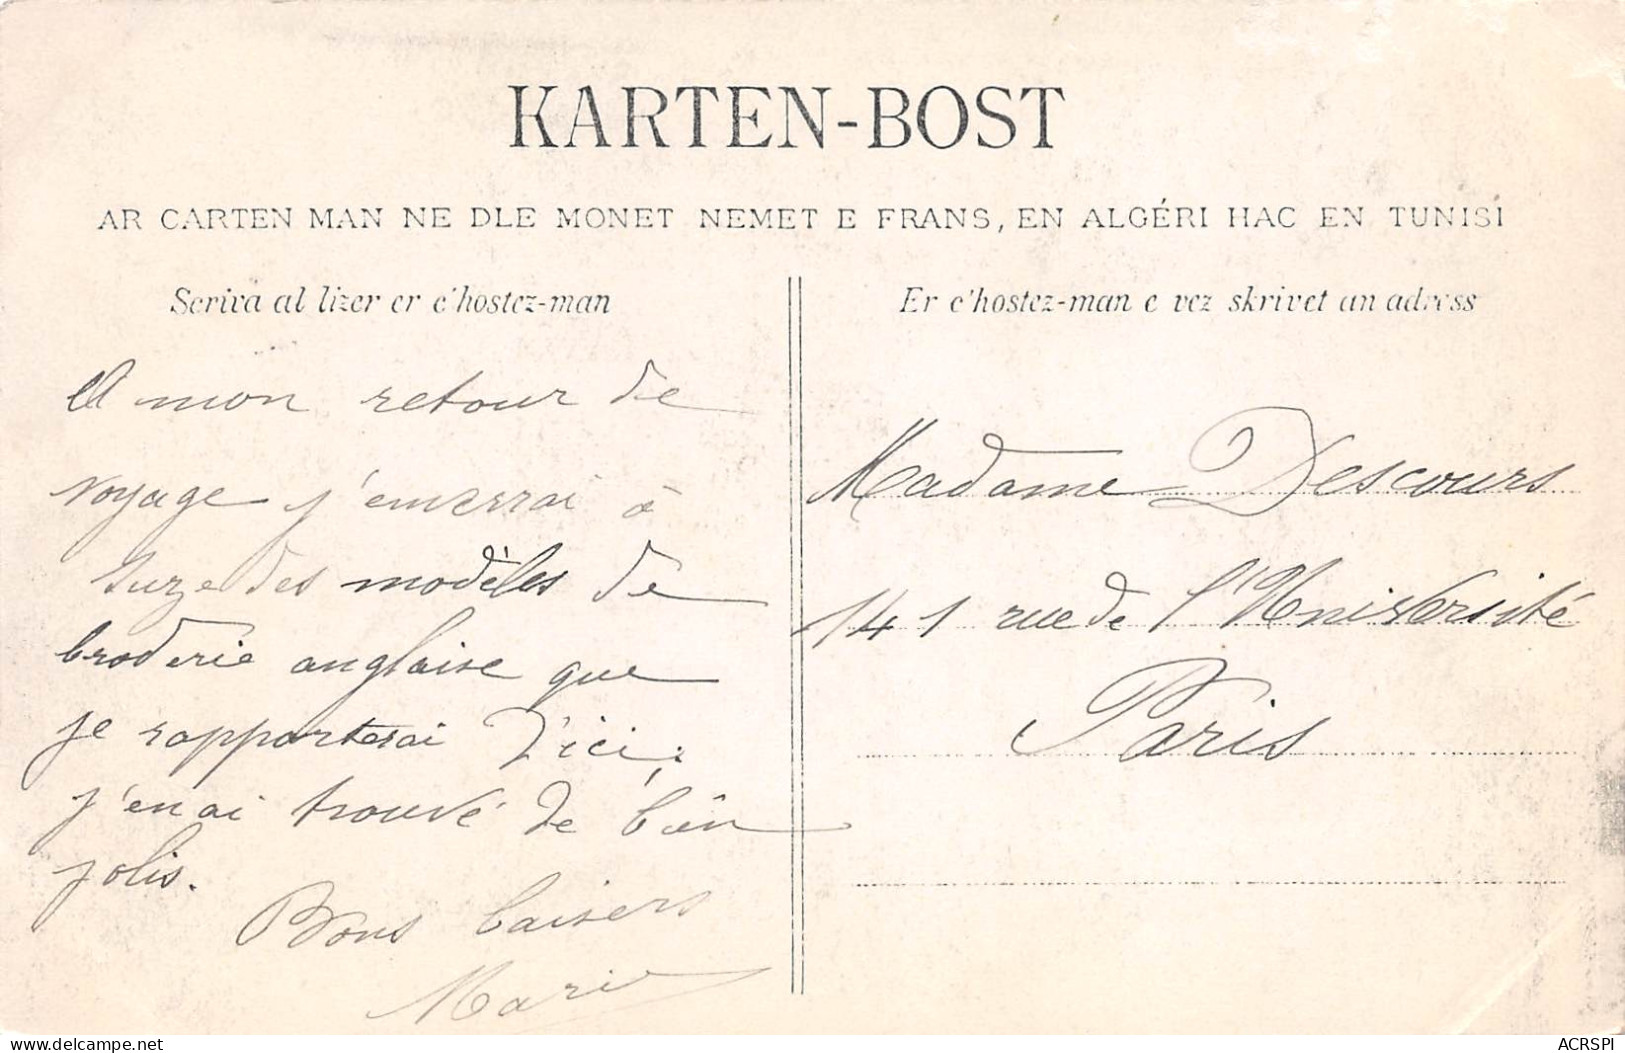 KARTEN-BOST
AR CARTEN MAN NE DLE MONET NEMET E FRANS, EN ALGÉRI HAC EN TUNISI
Scriva al lizer er c'hostez-man
Er c'hostez-man e vez skrivet an adress
A mon retour de
voyage j'enverrai à
Suze des modèles de
broderie anglaise que
je rapporterai d'ici;
j'en ai trouvé de bien
jolis.
Bons baisers
Marie
Madame Descours
141 rue de l'Université
Paris
delcampe.net
ACRSPI